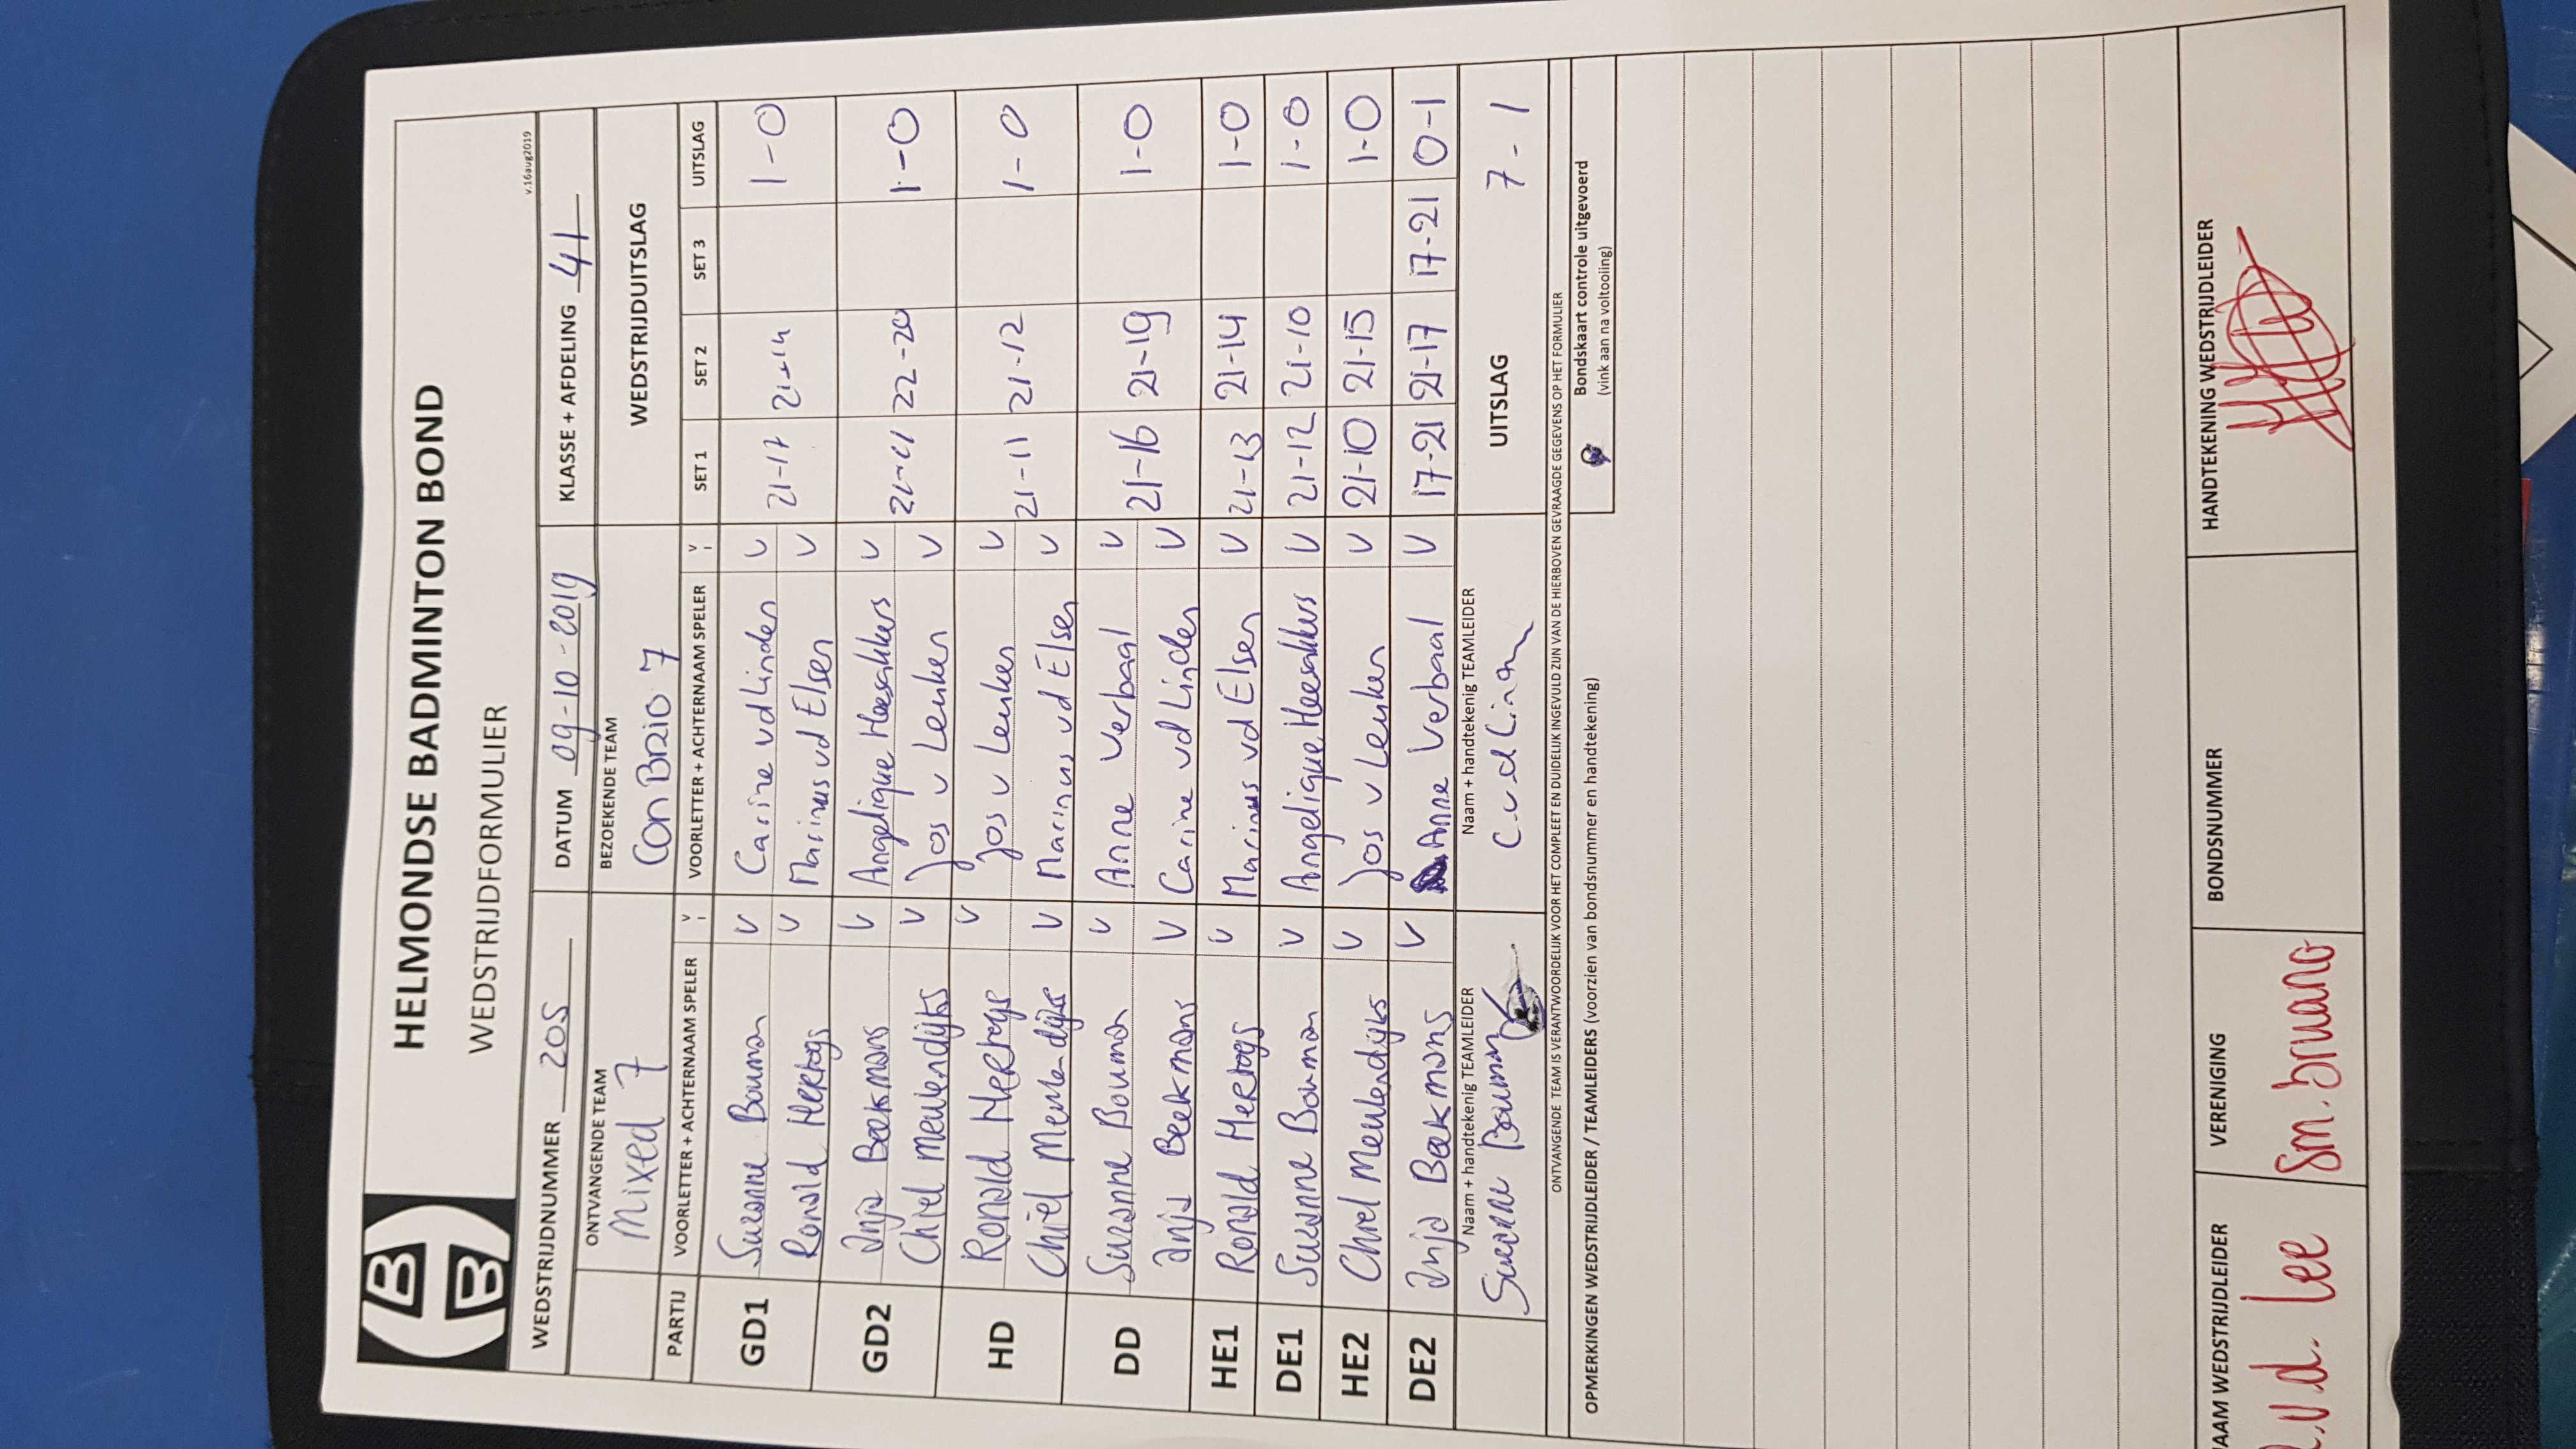 HBB
HELMONDSE BADMINTON BOND
WEDSTRIJDFORMULIER
v.16aug2019
WEDSTRIJDNUMMER 205 DATUM 09-10-2019 KLASSE + AFDELING 41
ONTVANGENDE TEAM BEZOEKENDE TEAM WEDSTRIJDUITSLAG
Mixed 7 Con Brio 7
PARTIJ VOORLETTER + ACHTERNAAM SPELER V VOORLETTER + ACHTERNAAM SPELER V SET 1 SET 2 SET 3 UITSLAG
GD1 Susanne Bouman V Carine vd Linden V 21-17 21-14 1-0
Ronald Hertogs V Marinus vd Elsen V
GD2 Anja Beekmans V Angelique Heesakkers V 21-11 22-20 1-0
Chiel Meulendijks V Jos v Leuken V
HD Ronald Hertogs V Jos v Leuken V 21-11 21-12 1-0
Chiel Meulendijks V Marinus vd Elsen V
DD Susanne Bouman V Anne Verbaal V 21-16 21-19 1-0
Anja Beekmans V Carine vd Linden V
HE1 Ronald Hertogs V Marinus vd Elsen V 21-13 21-14 1-0
DE1 Susanne Bouman V Angelique Heesakkers V 21-12 21-10 1-0
HE2 Chiel Meulendijks V Jos v Leuken V 21-10 21-15 1-0
DE2 Anja Beekmans V Anne Verbaal V 17-21 21-17 17-21 0-1
Naam + handtekenig TEAMLEIDER Naam + handtekenig TEAMLEIDER UITSLAG 7-1
Susanne Bouman C vd Linden
ONTVANGENDE TEAM IS VERANTWOORDELIJK VOOR HET COMPLEET EN DUIDELIJK INGEVULD ZIJN VAN DE HIERBOVEN GEVRAAGDE GEGEVENS OP HET FORMULIER
OPMERKINGEN WEDSTRIJDLEIDER / TEAMLEIDERS (voorzien van bondsnummer en handtekening)
Bondskaart controle uitgevoerd
(vink aan na voltooiing)
NAAM WEDSTRIJDLEIDER VERENIGING BONDSNUMMER HANDTEKENING WEDSTRIJDLEIDER
v.d. Lee Sm. bruano